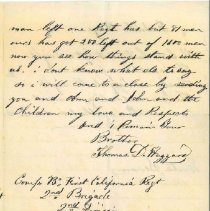 man left one Regt has but 81 men
ours has got 250 left out of 1600 men
now you see how things stand with
us. i dont know what els to say
so i will come to a close by sending
you and Ann and John and the
Children my love and Respects
and i Remain your
Brother
Thomas D. Haggard
Comp B. First California Regt
2nd Brigade
2nd